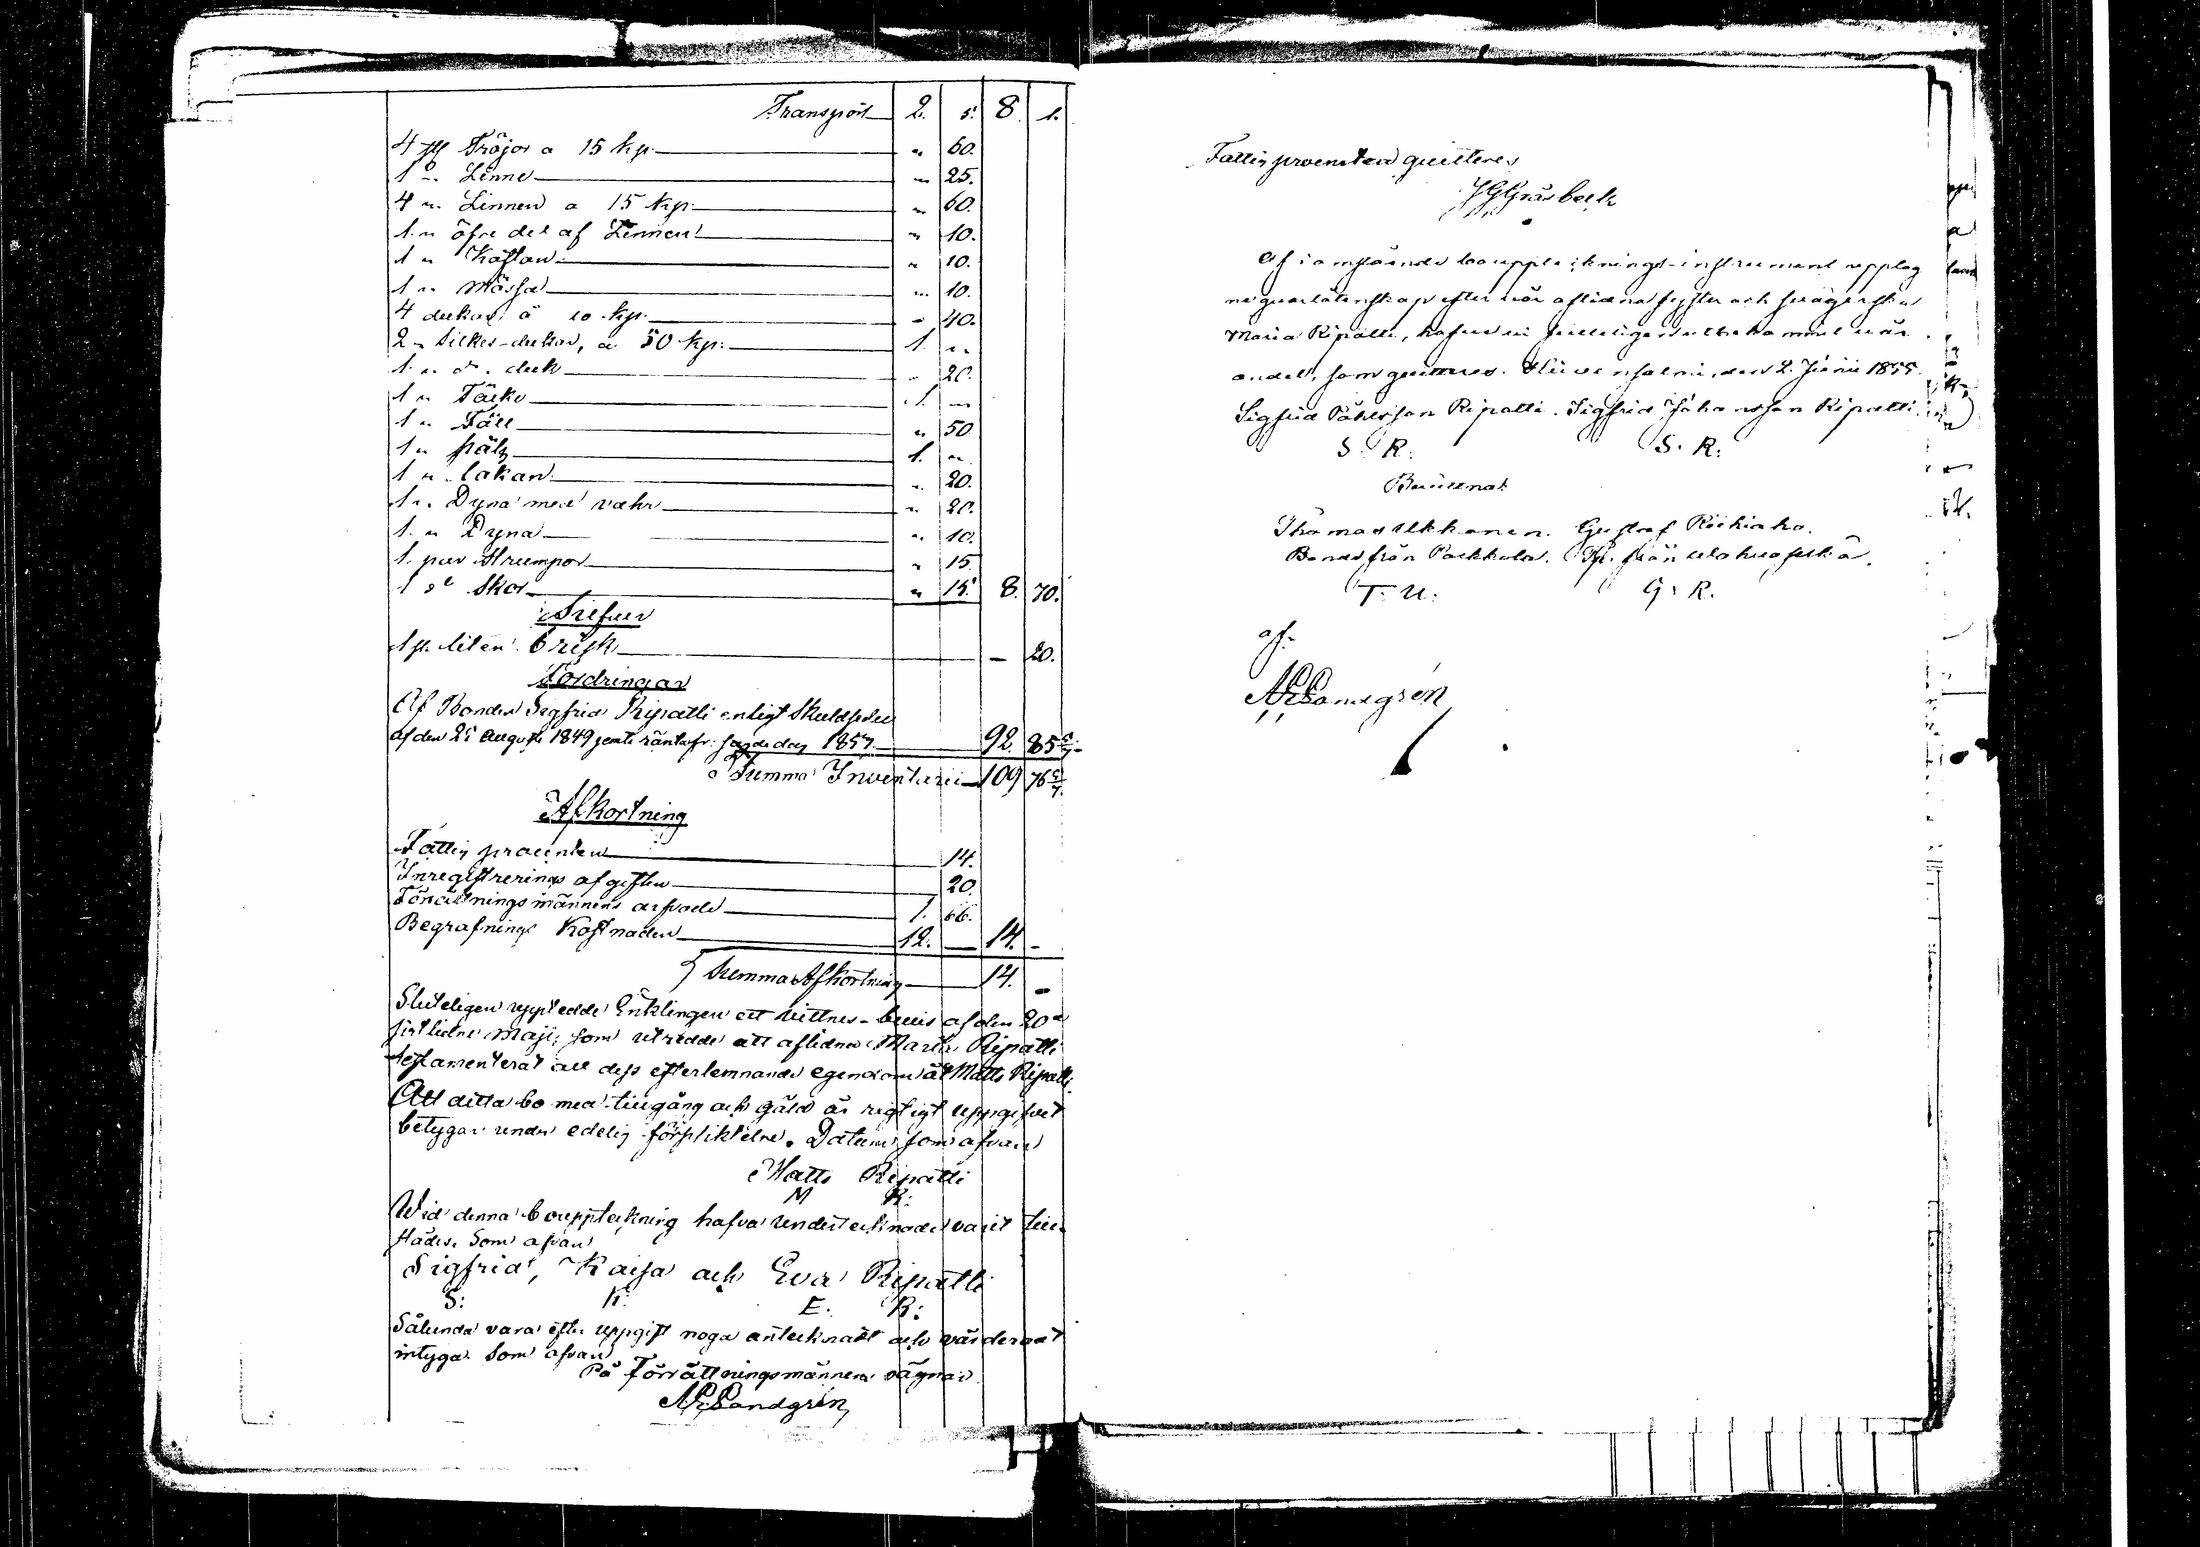 Transport 2. 5. 8. 1.
4 st Tröjor a 15 kp. „ 60.
1 „ Linne „ 25.
4 „ Linnen a 15 kp. „ 60.
1 „ öfre del af Linnen „ 10.
1 „ Koftan „ 10.
1 „ Mössa „ 10.
4 dukar á 10 kp. „ 40.
2 „ Silkes-dukar, a 50 kp. 1. „
1 „ do. duk „ 20.
1 „ Täcke 1. „
1 „ Fäll „ 50
1 „ pälz 1. „
1 „ lakan „ 20.
1 „ Dyna med vahr „ 20.
1 „ Dyna „ 10.
1 par Strumpor „ 15.
1 do Skor „ 15. 8. 70.
1 st. liten brisk — 20.
Fordringar
Af Bonden Sigfrid Ripatti enligt Skuldsedel
af den 25 Augusti 1849 jemte ränta fr. samma dag 1857. 92. 85 5/7.
Summa Inventarii 109 76 5/7.
Afkortning
Fattig procenten 14.
Inregistrerings afgiften 20.
Förrättningsmännens arfvode 1. 66.
Begrafnings Kostnaden 12. — 14. -
Summa Afkortning 14. -
Sluteligen uppledde Enklingen ett vittnes-bevis af den 20de
sistlidne Maji, som utredde att aflidna Maria Ripatti
testamenterat all dess efterlemnande egendom åt Matts Ripatti.
Att detta bo med tillgång och gäld är rigtigt uppgifvet
betygar under edelig förpliktelse. Datum som ofvan
Matts Ripatti
M R:
Wid denna bouppteckning hafva undertecknade varit till-
städes. Som ofvan
Sigfrid, Kaisa och Eva Ripatti
S: K: E. R:
Sålunda vara efter uppgift noga antecknadt och värderadt
intyga. Som ofvan
På Förrättningsmännens vägnar
Sandgrén
Fattigprocenten quitteres
J G Gräsbeck
Af i omstående bouppteknings-instrument upptag
ne quarlåtenskap efter vår aflidna syster och svägerska
Maria Ripatti, hafva vi fulleligen utbekommit vår
andel, som quitteras. Hiirvensalmi, den 2. Junii 1855.
Sigfrid Påhlsson Ripatti. Sigfrid Johansson Ripatti.
S. R. S. R.
Bevittnat
Thomas Ukkonen. Gustaf
Bonde från Pakkola. från
T. U: G: R.
af.
Sandgrén